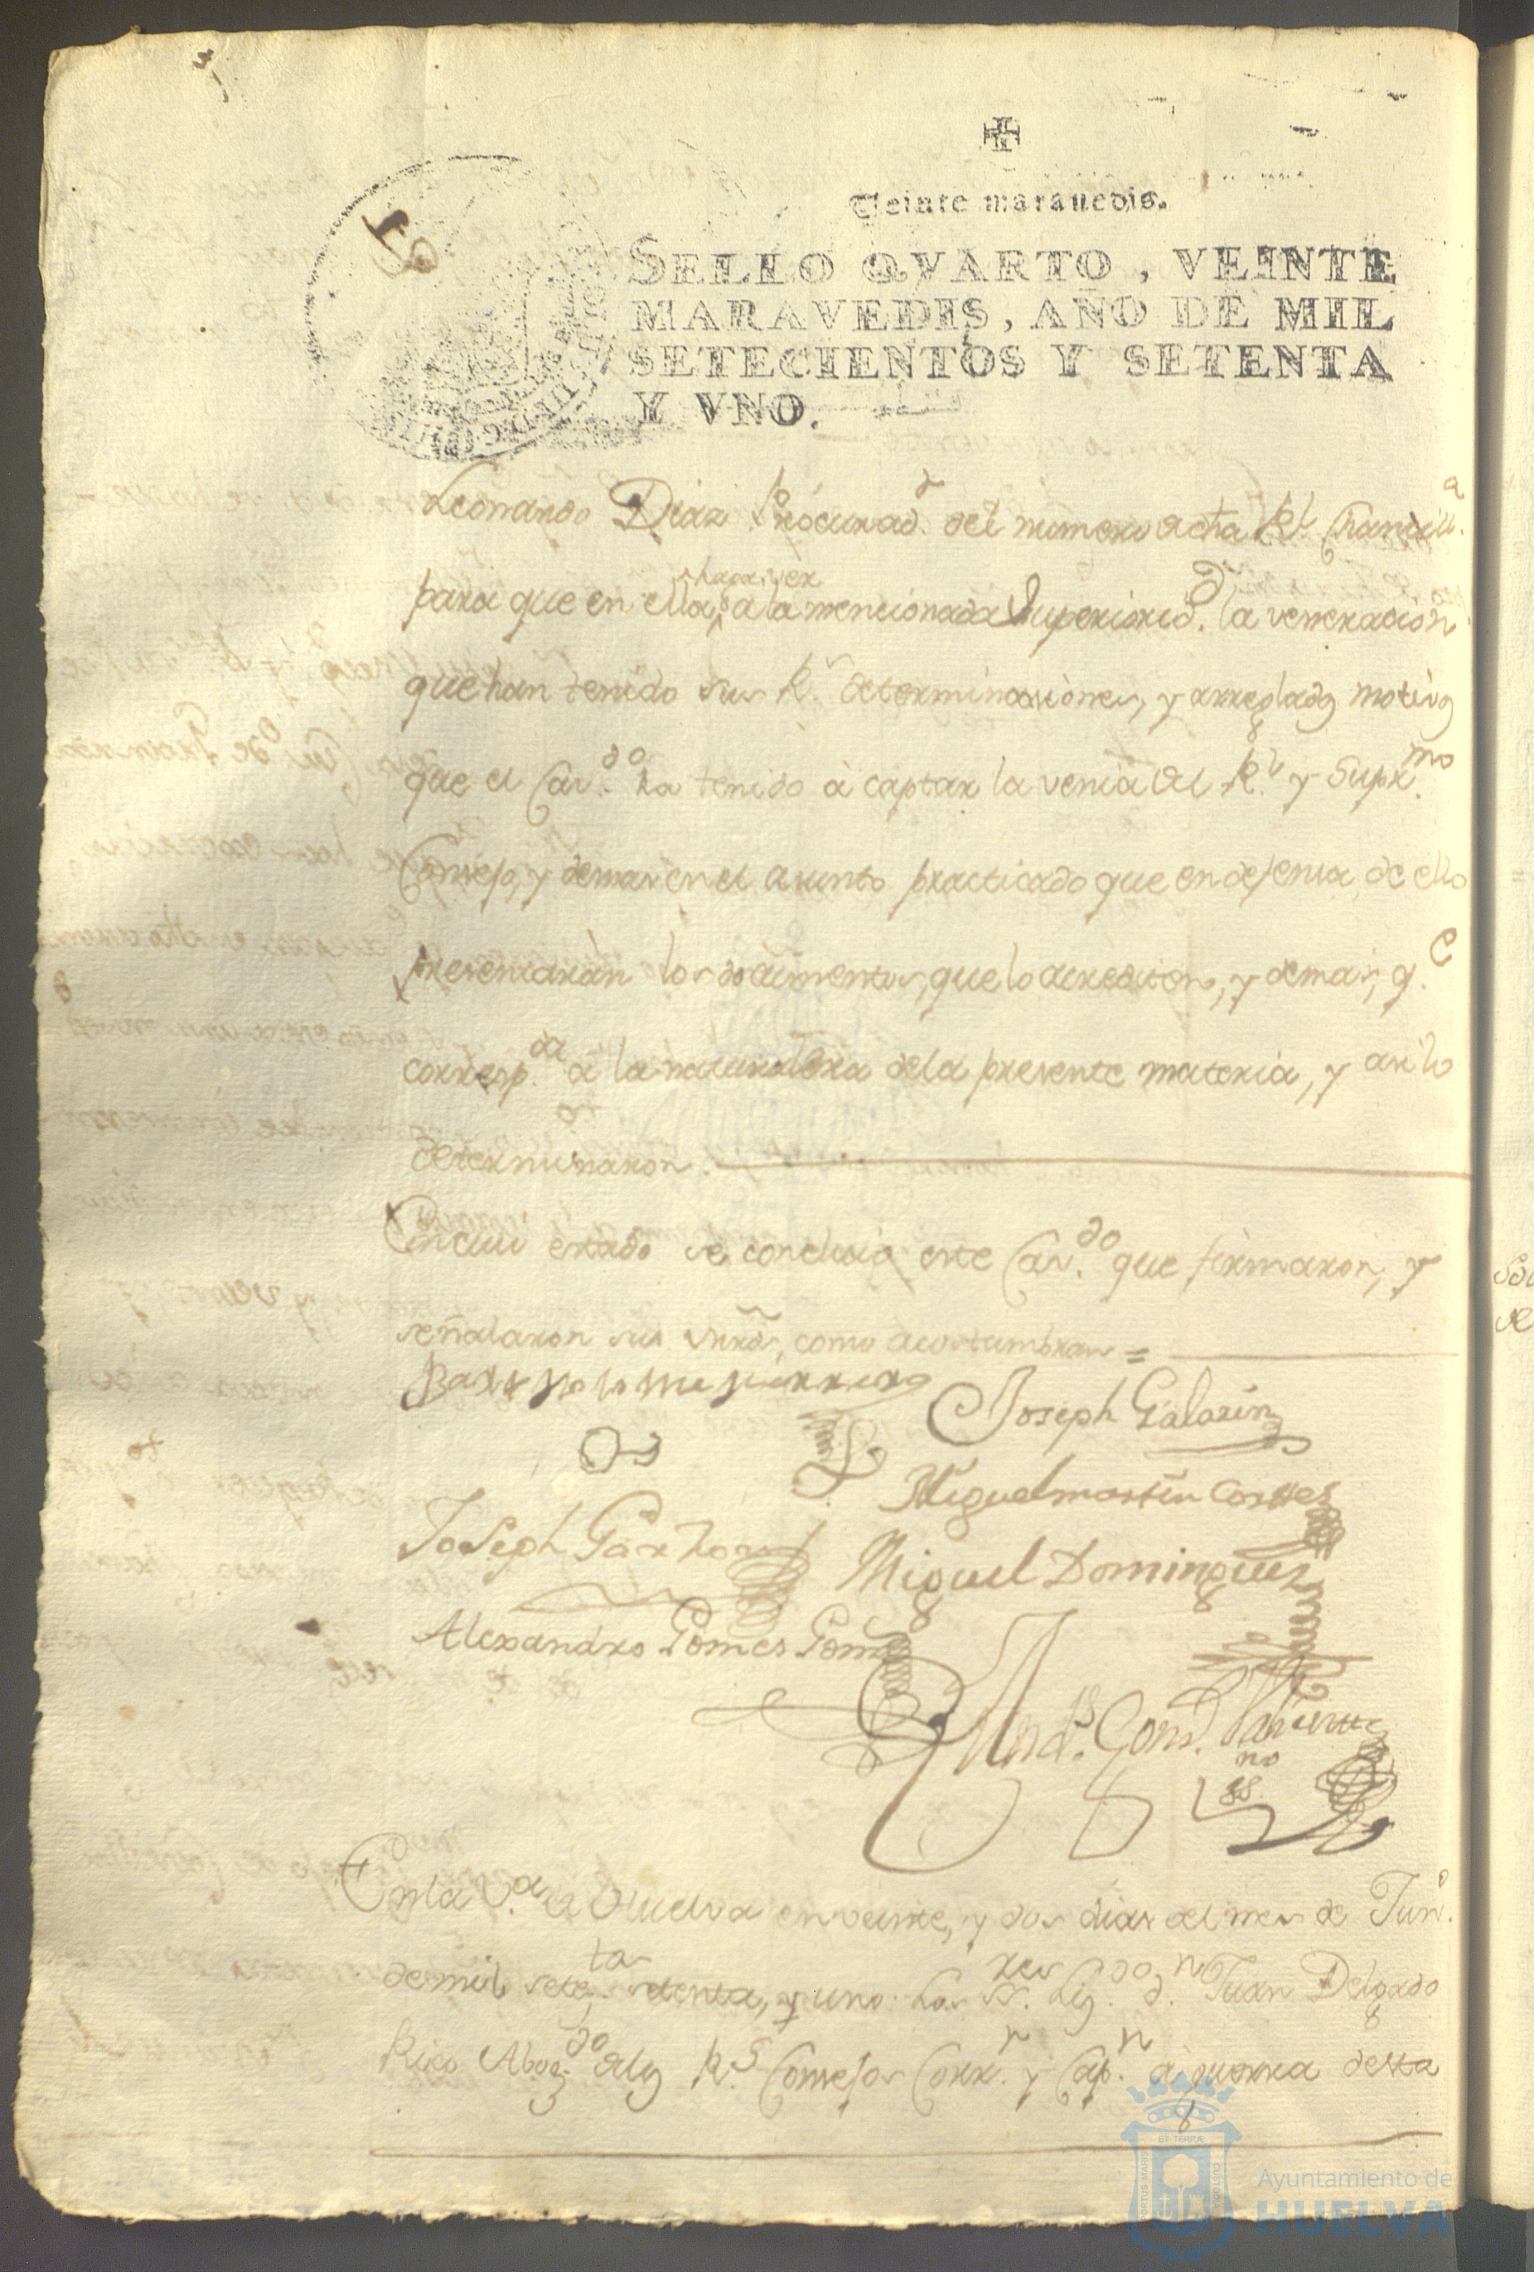 Veinte maravedis.
SELLO QVARTO, VEINTE
MARAVEDIS, AÑO DE MIL
SETECIENTOS Y SETENTA
Y VNO.
Leonardo Diaz Procurad.r del numero de dha Rl. Chancill.a
para que en ella haga ver a la mencionada Superiorid.d la veneracion
que han tenido sus R.s determinaciones, y arreglados motivos
que el Cav.do ha tenido à captar la venia del R.l y Supr.mo
Consejo, y demas en el asunto practicado que en defensa de ello
presentaràn los documentos, que lo acrediten, y demas, q.e
corresp.da a la naturaleza de la presente materia, y asi lo
determinaron.
En cuio estado se concluio este Cav.do que firmaron, y
señalaron sus mrds, como acostumbran =
Bartholome
Joseph Galarin
Miguel martin Corttes
Joseph Garzon
Miguel Dominguez
Alexandro Gomes
And.s Gonz.
no
ss.
En la V.a de Huelva en veinte, y dos dias del mes de Jun.o
de mil sete.tas setenta, y uno: Los SS.res Liz.do d.n Juan Delgado
Rico Abog.do de los R.s Consejos Corr.r y Cap.n à guerra desta
Ayuntamiento de
HUELVA